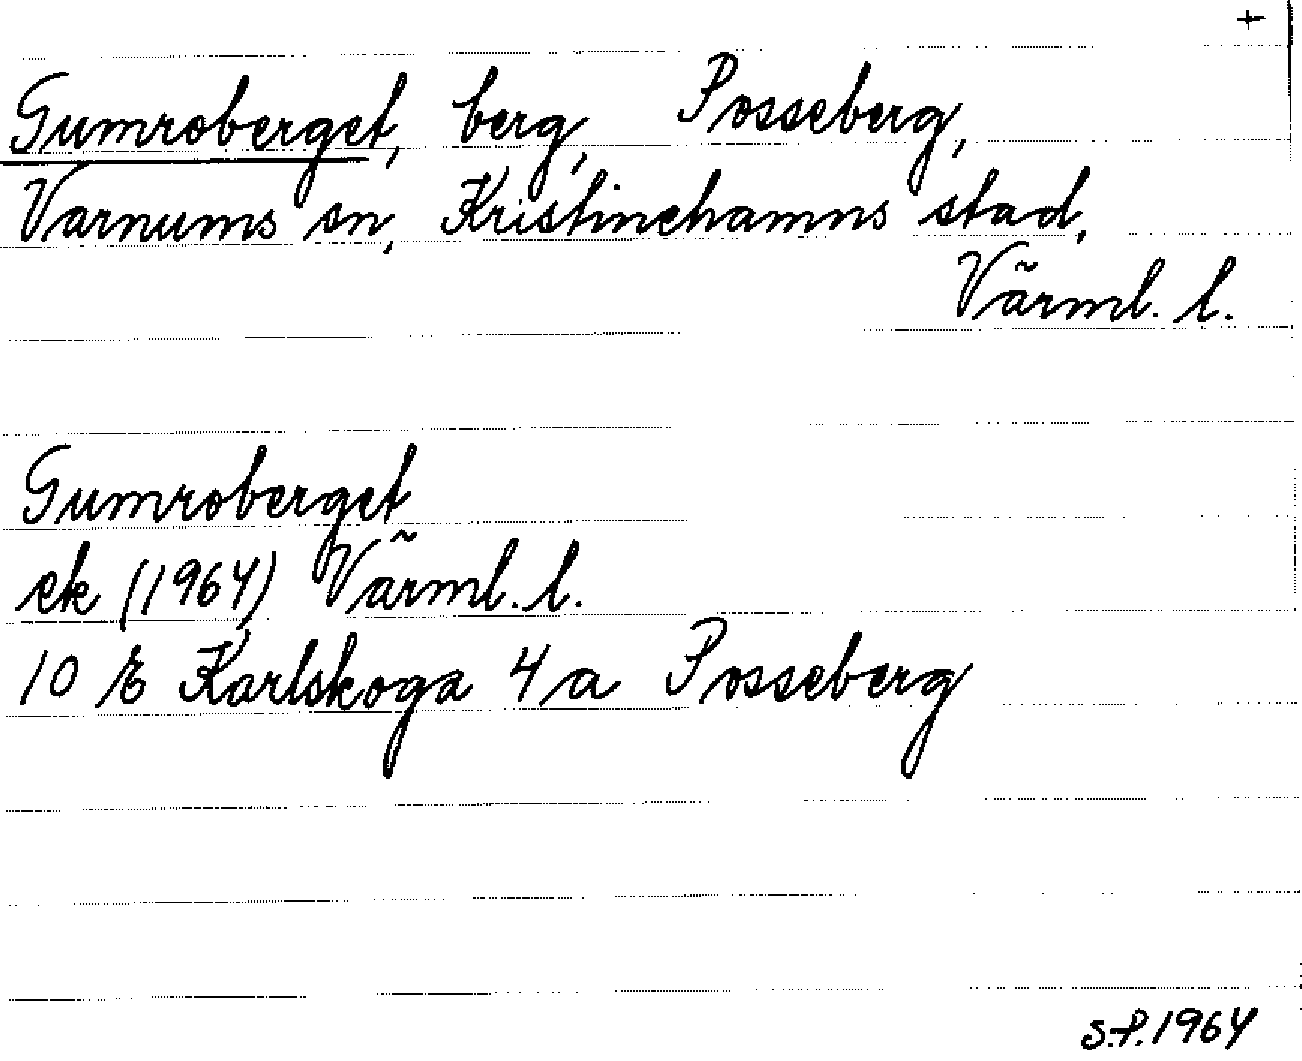 +
Gumroberget, berg, Posseberg,
Varnums sn, Kristinehamns stad,
Värml. l.
Gumroberget
ek (1964) Värml. l.
10 E Karlskoga 4 a Posseberg
S.P. 1964